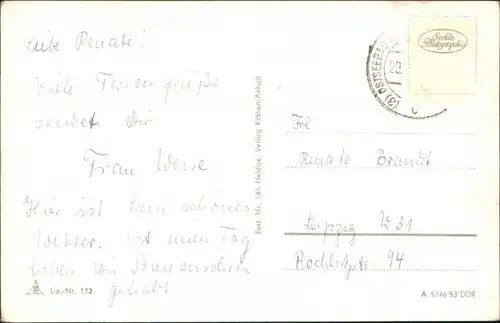 Liebe Renate!
Viele Feriengrüße
sendet Dir
Frau Weise
Hier ist kein schönes
Wetter. Erst einen Tag
haben wir Sonnenschein
gehabt
Liz.-Nr. 172
Best. Nr. 585 Heldge-Verlag Köthen/Anhalt
Echte
Photographie
OSTSEEBAD
Frl
Renate Brandt
Leipzig W 31
94
A 5346/53/DDR